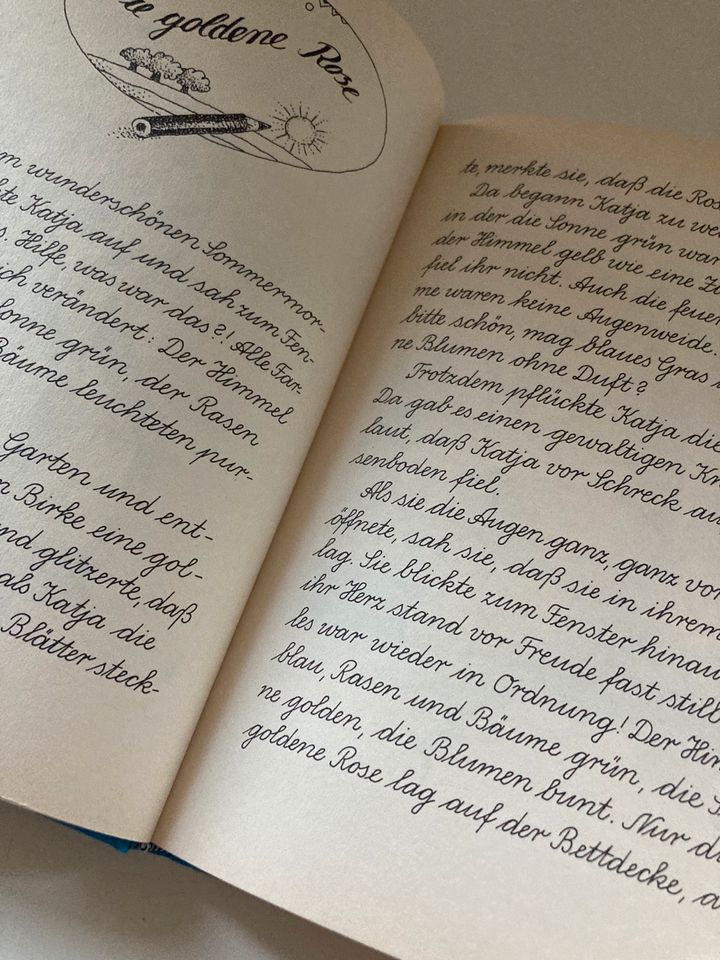 goldene Rose
wunderschönen Sommermor-
te Katja auf und sah zum Fen-
s. Hilfe, was war das?! Alle Far-
ich verändert: Der Himmel
Sonne grün, der Rasen
Bäume leuchteten pur-
Garten und ent-
Birke eine gol-
nd glitzerte, daß
als Katja die
Blätter steck-
te, merkte sie, daß die Ros
Da begann Katja zu wei
in der die Sonne grün war
der Himmel gelb wie eine Zi
fiel ihr nicht. Auch die feuer
me waren keine Augenweide.
bitte schön, mag blaues Gras
ne Blumen ohne Duft?
Trotzdem pflückte Katja die
Da gab es einen gewaltigen Kn
laut, daß Katja vor Schreck au
senboden fiel.
Als sie die Augen ganz, ganz vor
öffnete, sah sie, daß sie in ihrem
lag. Sie blickte zum Fenster hinau
ihr Herz stand vor Freude fast still
les war wieder in Ordnung! Der Him
blau, Rasen und Bäume grün, die S
ne golden, die Blumen bunt. Nur di
goldene Rose lag auf der Bettdecke, a